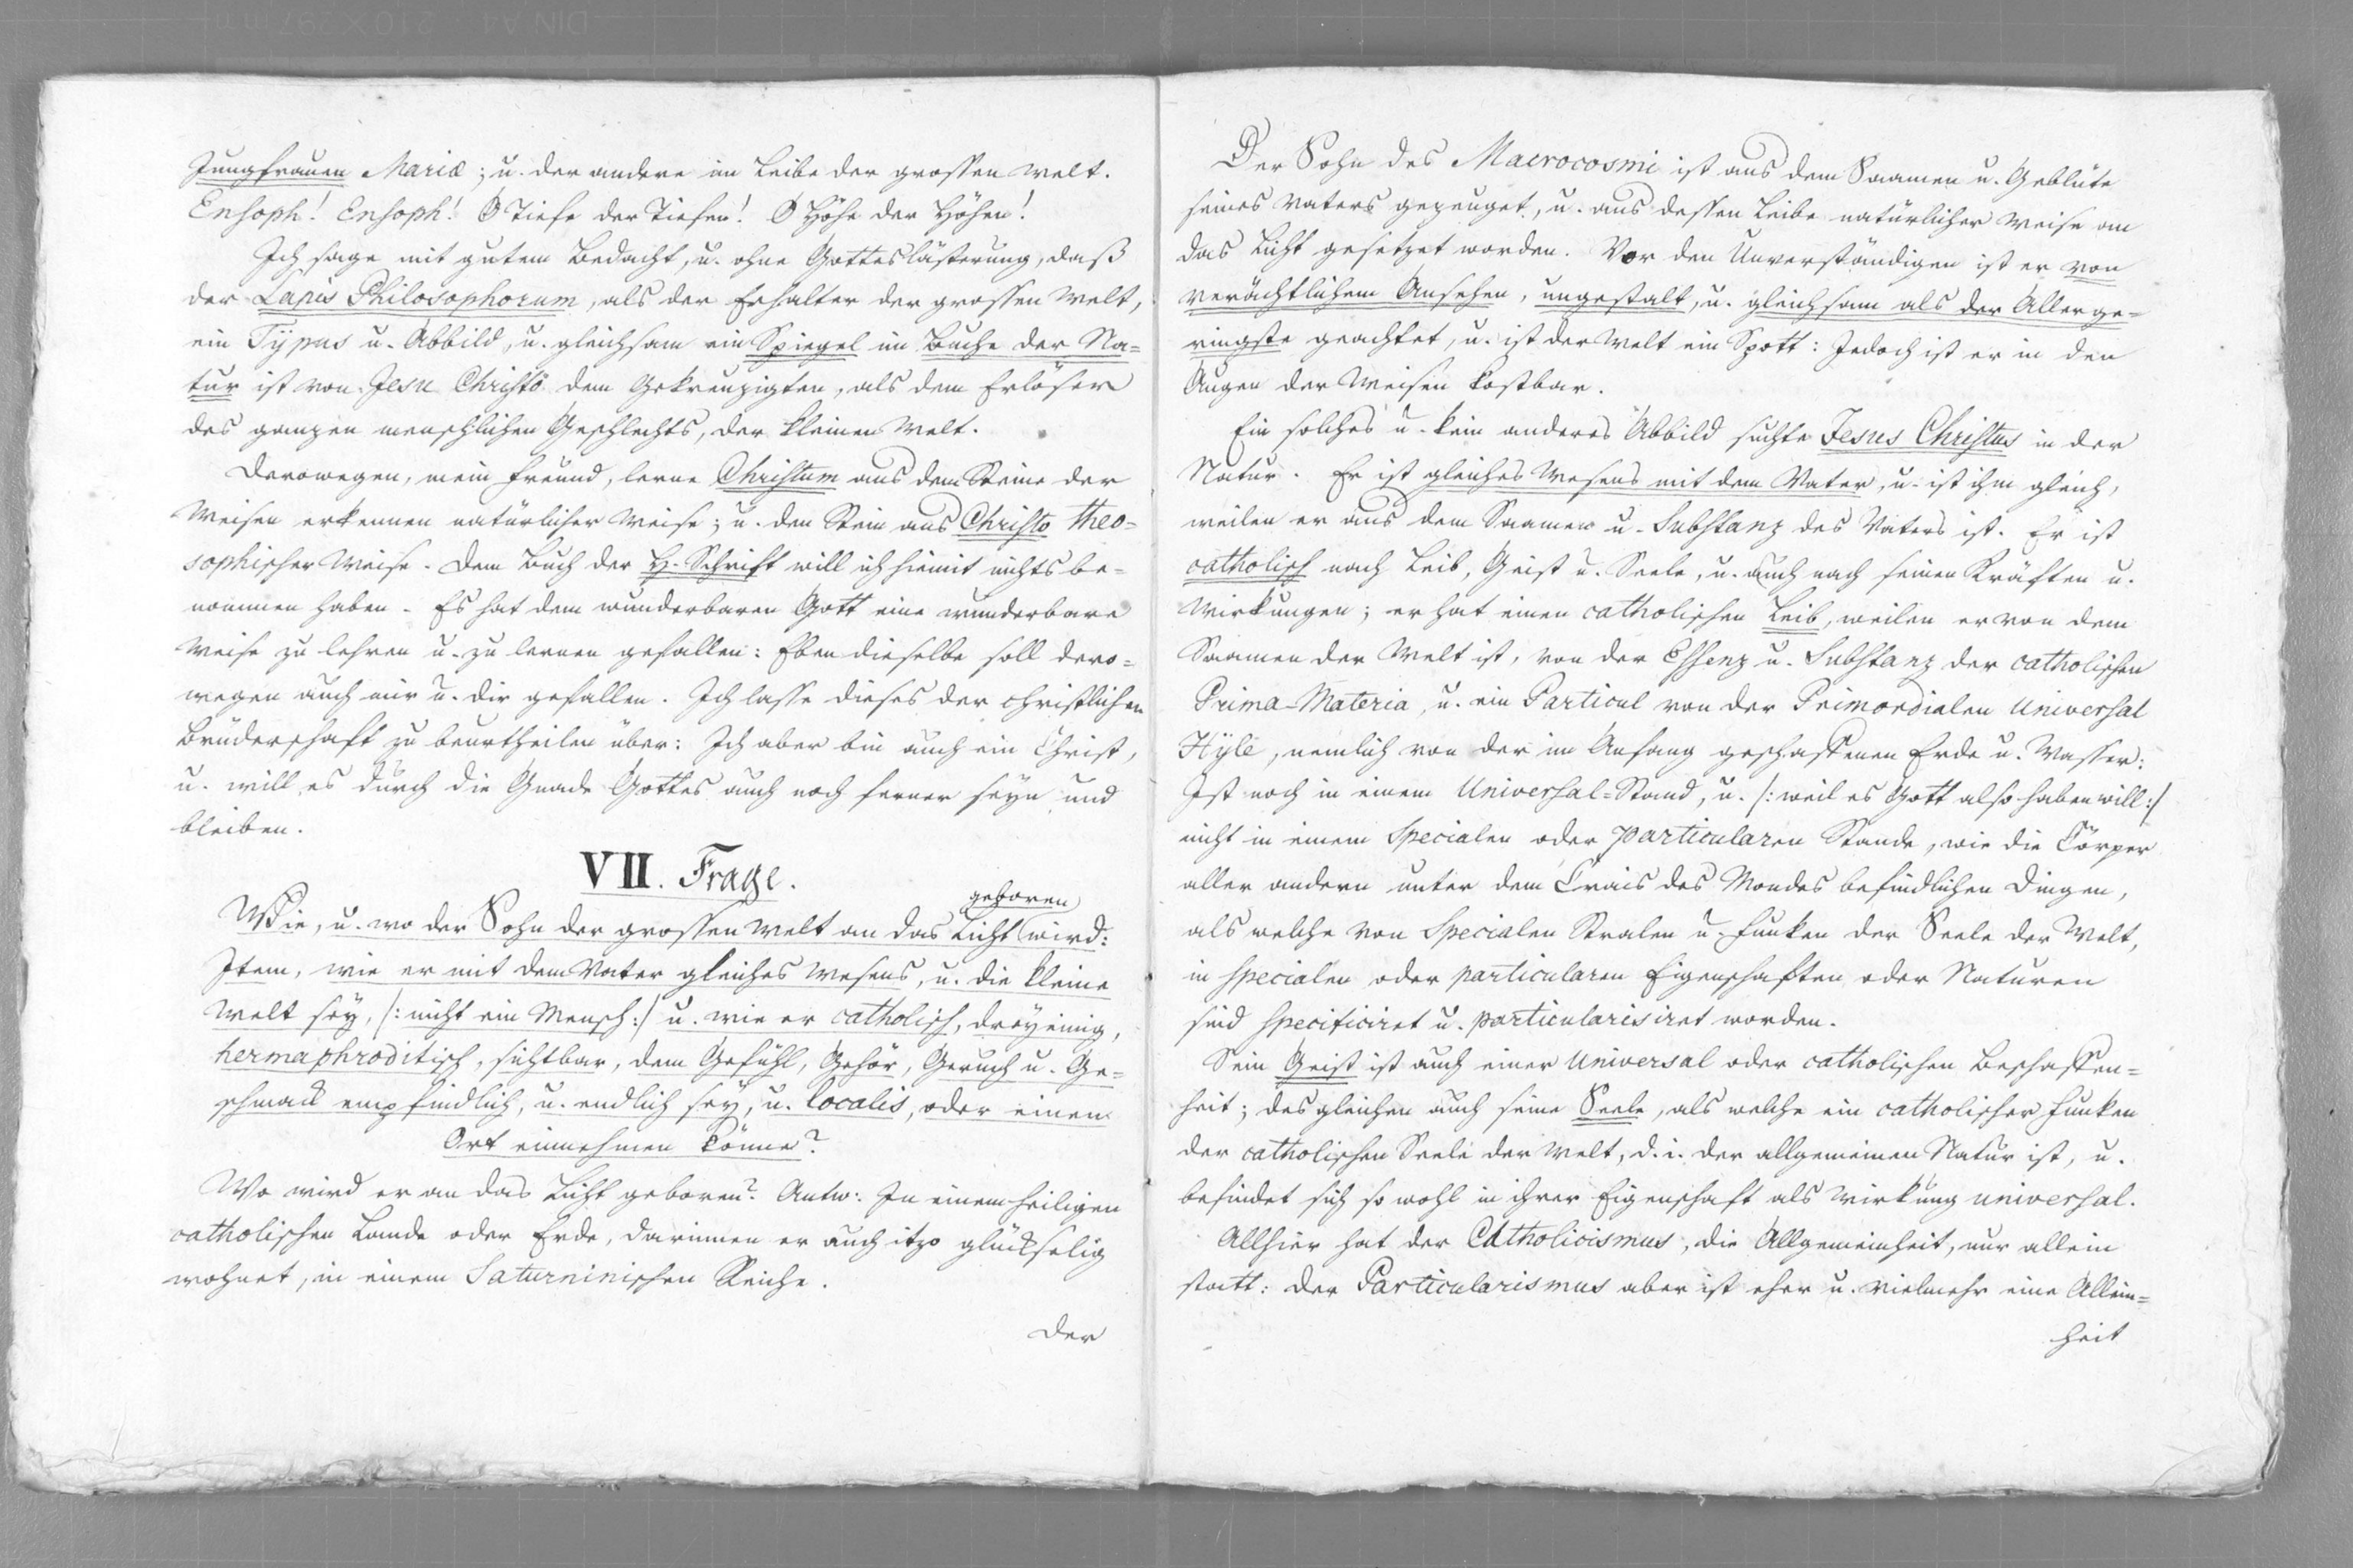 Jungfrauen Mariæ; u. der andere im Leibe der grossen Welt.
Ensoph! Ensoph! O Tiefe der Tiefen! O Höhe der Höhen!
Ich sage mit gutem Bedacht, u. ohne Gotteslästerung, daß
der Lapis Philosophorum, als der Erhalter der grossen Welt,
ein Typus u. Abbild, u. gleichsam ein Spiegel im Buche der Na=
tur ist von Jesu Christo dem Gekreuzigten, als dem Erlöser
des ganzen menschlichen Geschlechts, der kleinen Welt.
Derowegen, mein Freund, lerne Christum aus dem Steine der
Weisen erkennen natürlicher Weise; u. den Stein aus Christo theo=
sophischer Weise. Dem Buch der H. Schrift will ich hiemit nichts be=
nommen haben. Es hat dem wunderbaren Gott eine wunderbare
Weise zu lehren u. zu lernen gefallen: Eben dieselbe soll dero=
wegen auch mir u. dir gefallen. Ich lasse dieses der christlichen
Brüderschaft zu beurtheilen über: Ich aber bin auch ein Christ,
u. will es durch die Gnade Gottes auch noch ferner seyn und
bleiben.
VII. Frage.
geboren
Wie, u. wo der Sohn der grossen Welt an das Licht wird:
Item, wie er mit dem Vater gleiches Wesens, u. die kleine
Welt sey, /: nicht ein Mensch :/ u. wie er catholisch, dreyeinig,
hermaphroditisch, sichtbar, dem Gefühl, Gehör, Geruch u. Ge=
schmack empfindlich, u. endlich sey, u. localis, oder einen
Ort einnehmen könne?
Wo wird er an das Licht geboren? Antw: In einem heiligen
catholischen Lande oder Erde, darinnen er auch itzo glückselig
wohnet, in einem Saturninischen Reiche.
Der
Der Sohn des Macrocosmi ist aus dem Saamen u. Geblüte
seines Vaters gezeuget, u. aus dessen Leibe natürlicher Weise an
das Licht gesetzet worden. Vor den Unverständigen ist er von
verächtlichem Ansehen, ungestalt, u. gleichsam als der Allerge=
ringste geachtet, u. ist der Welt ein Spott: Jedoch ist er in den
Augen der Weisen kostbar.
Ein solches u. kein anderes Abbild suchte Jesus Christus in der
Natur. Er ist gleiches Wesens mit dem Vater, u. ist ihm gleich,
weilen er aus dem Saamen u. Substanz des Vaters ist. Er ist
catholisch nach Leib, Geist u. Seele, u. auch nach seinen Kräften u.
Wirkungen; er hat einen catholischen Leib, weilen er von dem
Saamen der Welt ist, von der Essenz u. Substanz der catholischen
Prima-Materia, u. ein Particul von der Primordialen Universal
Hyle, nemlich von der im Anfang geschaffenen Erde u. Wasser:
Ist noch in einem Universal=Stand, u. /: weil es Gott also haben will :/
nicht in einem Specialen oder particularen Stande, wie die Cörper
aller andern unter dem Crais des Mondes befindlichen Dingen,
als welche von Specialen Stralen u. Funken der Seele der Welt,
in specialen oder particularen Eigenschaften oder Naturen
sind specificiret u. particularisiret worden.
Sein Geist ist auch einer Universal oder catholischen Beschaffen=
heit; desgleichen auch seine Seele, als welche ein catholischer Funken
der catholischen Seele der Welt, d. i. der allgemeinen Natur ist, u.
befindet sich so wohl in ihrer Eigenschaft als Wirkung universal.
Allhier hat der Catholicismus, die Allgemeinheit, nur allein
statt: der Particularismus aber ist eher u. vielmehr eine Allein=
heit